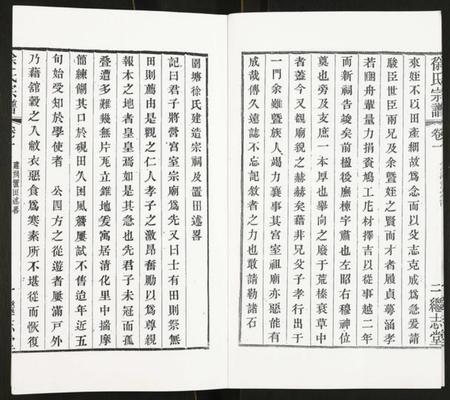 徐氏宗譜 卷一 二 繼志堂
來姪不以田產細故爲念而以爻志克成爲急爰請
駿臣世臣兩兄及余曁姪之賢而才者履貞蕚涵孝
若國舟輩量力捐貲鳩工庀材擇吉以從事越二年
而新祠告竣矣前楹後廡棟宇肅也左昭右穆神位
奠也旁及支庶一本厚也舉向之廢于荒榛衰草中
者蓋今又覩廟貌之赫赫矣藉非兄父子孝行出于
一門余雖曁族人竭力襄事其宮室祖廟亦惡能有
成哉傳久遠誌不忘記敘者之力也敢請勒諸石
圖塘徐氏建造宗祠及置田述畧
記曰君子將營宮室宗廟爲先又曰士有田則祭無
田則薦由是觀之仁人孝子之激昂奮勵以爲尊親
報本之地者皇皇焉如是其急也先君子未冠而孤
疊遭多難幾無片瓦立錐地爰寓居清化里中揣摩
簡練餬其口於硯田久困風簷屢試不售迨年近五
旬始受知於學使者 公四方之從遊者屢滿戸外
乃藉舘穀之入敝衣惡食爲寒素所不堪從而恢復
徐氏宗譜 卷一 建祠置田述畧 一